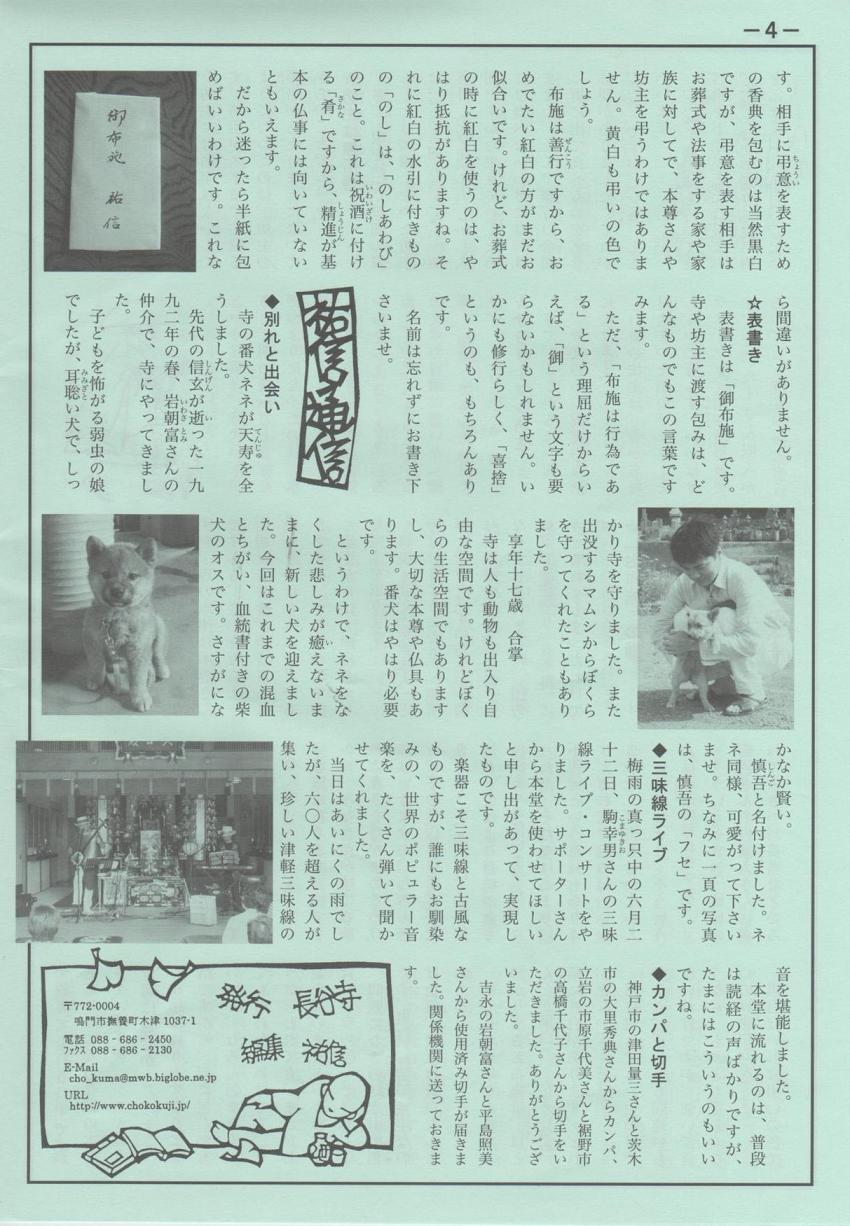 －4－
す。相手に弔意を表すため
の香典を包むのは当然黒白
ですが、弔意を表す相手は
お葬式や法事をする家や家
族に対してで、本尊さんや
坊主を弔うわけではありま
せん。黄白も弔いの色で
しょう。
布施は善行ですから、お
めでたい紅白の方がまだお
似合いです。けれど、お葬式
の時に紅白を使うのは、や
はり抵抗がありますね。そ
れに紅白の水引に付きもの
の「のし」は、「のしあわび」
のこと。これは祝酒に付け
る「肴」ですから、精進が基
本の仏事には向いていない
ともいえます。
だから迷ったら半紙に包
めばいいわけです。これな
御布施 祐信
ら間違いがありません。
☆表書き
表書きは「御布施」です。
寺や坊主に渡す包みは、ど
んなものでもこの言葉です
みます。
ただ、「布施は行為であ
る」という理屈だけからい
えば、「御」という文字も要
らないかもしれません。い
かにも修行らしく、「喜捨」
というのも、もちろんあり
です。
名前は忘れずにお書き下
さいませ。
祐信通信
◆別れと出会い
寺の番犬ネネが天寿を全
うしました。
先代の信玄が逝った一九
九二年の春、岩朝富さんの
仲介で、寺にやってきまし
た。
子どもを怖がる弱虫の娘
でしたが、耳聡い犬で、しっ
かり寺を守りました。また
出没するマムシからぼくら
を守ってくれたこともあり
ました。
享年十七歳 合掌
寺は人も動物も出入り自
由な空間です。けれどぼく
らの生活空間でもあります
し、大切な本尊や仏具もあ
ります。番犬はやはり必要
です。
というわけで、ネネをな
くした悲しみが癒えないま
まに、新しい犬を迎えまし
た。今回はこれまでの混血
とちがい、血統書付きの柴
犬のオスです。さすがにな
かなか賢い。
慎吾と名付けました。ネ
ネ同様、可愛がって下さい
ませ。ちなみに一頁の写真
は、慎吾の「フセ」です。
◆三味線ライブ
梅雨の真っ只中の六月二
十二日、駒幸男さんの三味
線ライブ・コンサートをや
りました。サポーターさん
から本堂を使わせてほしい
と申し出があって、実現し
たものです。
楽器こそ三味線と古風な
ものですが、誰にもお馴染
みの、世界のポピュラー音
楽を、たくさん弾いて聞か
せてくれました。
当日はあいにくの雨でし
たが、六〇人を超える人が
集い、珍しい津軽三味線の
音を堪能しました。
本堂に流れるのは、普段
は読経の声ばかりですが、
たまにはこういうのもいい
ですね。
◆カンパと切手
神戸市の津田量三さんと茨木
市の大里秀典さんからカンパ、
立岩の市原千代美さんと裾野市
の高橋千代子さんから切手をい
ただきました。ありがとうござ
いました。
吉永の岩朝富さんと平島照美
さんから使用済み切手が届きま
した。関係機関に送っておきま
す。
発行 長谷寺
編集 祐信
〒772-0004
鳴門市撫養町木津 1037-1
電話 088-686-2450
ファクス 088-686-2130
E-Mail
cho_kuma@mwb.biglobe.ne.jp
URL
http://www.chokokuji.jp/